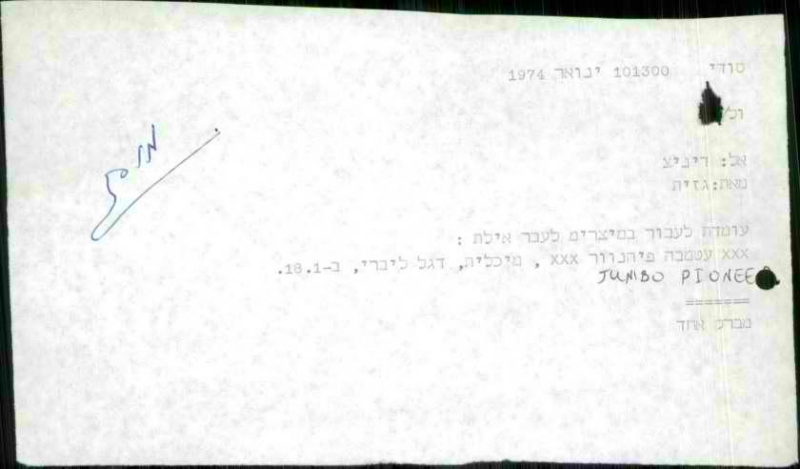 סודי 101300 ינואר 1974
ול
אל: דיניצ
מאת: גזית
עומדת לעבור במיצרים לעבר אילת :
xxx עטמבה פיהנוור xxx , מיכלית, דגל ליברי, ב-18.1.
JUMBO PIONEE
=======
מברק אחד